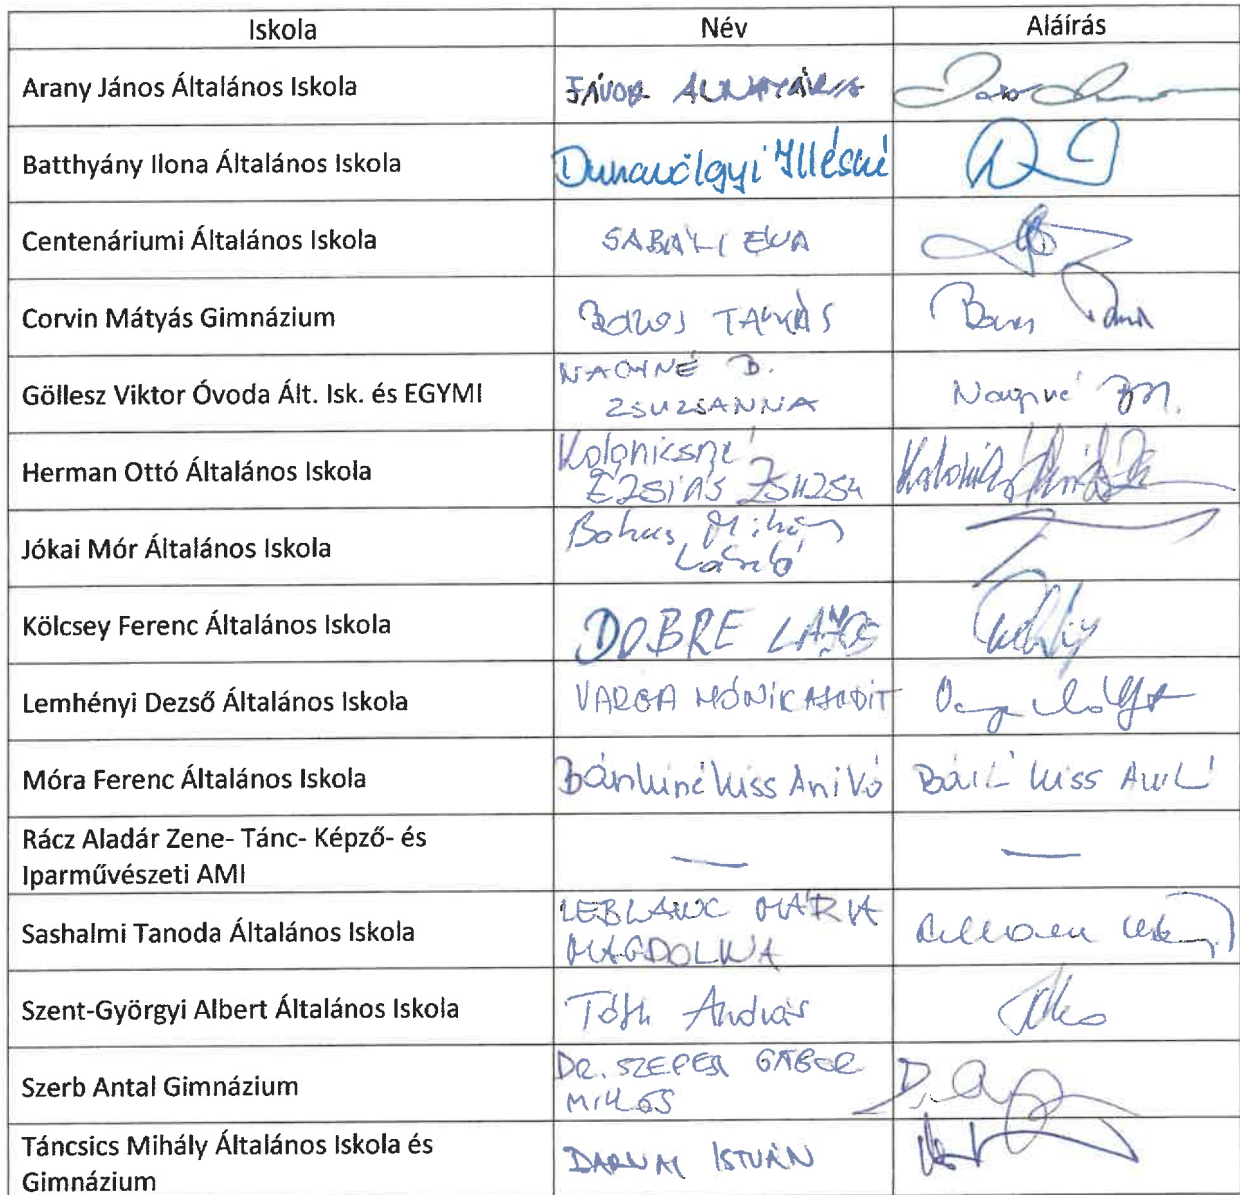 Iskola Név Aláírás
Arany János Általános Iskola FÁVOR ANNAMÁRIA
Batthyány Ilona Általános Iskola Dunavölgyi Illésné
Centenáriumi Általános Iskola SABÁLI ÉVA
Corvin Mátyás Gimnázium TAMÁS
NAGYNÉ B.
Göllesz Viktor Óvoda Ált. Isk. és EGYMI Nagyné
ZSUZSANNA
Kolonicsné
Herman Ottó Általános Iskola
ÉZSIÁS ZSUZSA
Bohus Mihály
Jókai Mór Általános Iskola
László
Kölcsey Ferenc Általános Iskola DOBRE LAJOS
Lemhényi Dezső Általános Iskola VARGA MÓNIKA JUDIT
Móra Ferenc Általános Iskola Bánkiné Kiss Anikó Kiss
Rácz Aladár Zene- Tánc- Képző- és
Iparművészeti AMI — —
LEBLANC MÁRIA
Sashalmi Tanoda Általános Iskola
MAGDOLNA
Szent-Györgyi Albert Általános Iskola Tóth András
DR. SZEPESI GÁBOR
Szerb Antal Gimnázium
MIKLÓS
Táncsics Mihály Általános Iskola és
Gimnázium DARNAI ISTVÁN